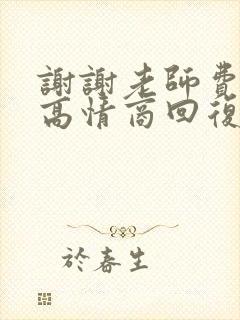 謝謝老師費
高情商回復
於春生